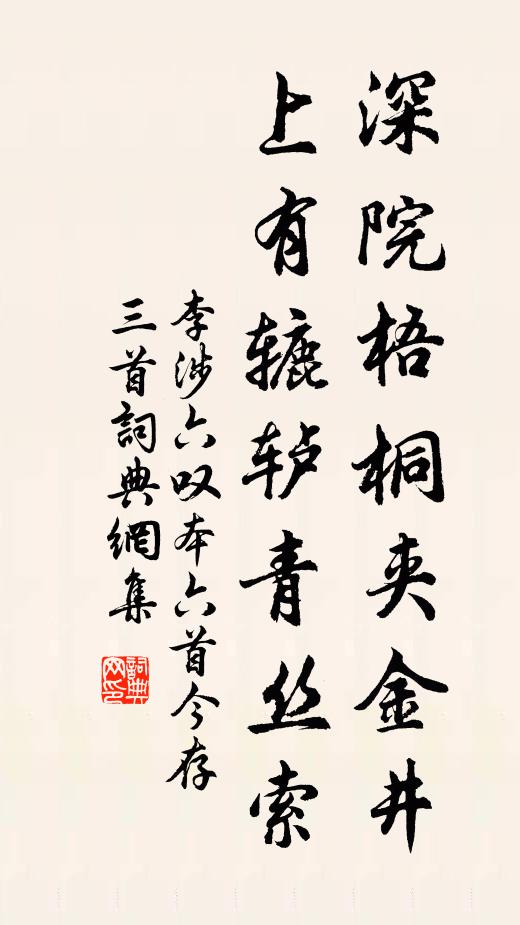 深院梧桐夹金井
上有辘轳青丝索
李涉六叹本六首今存
三首詞典網集
詞典
网印